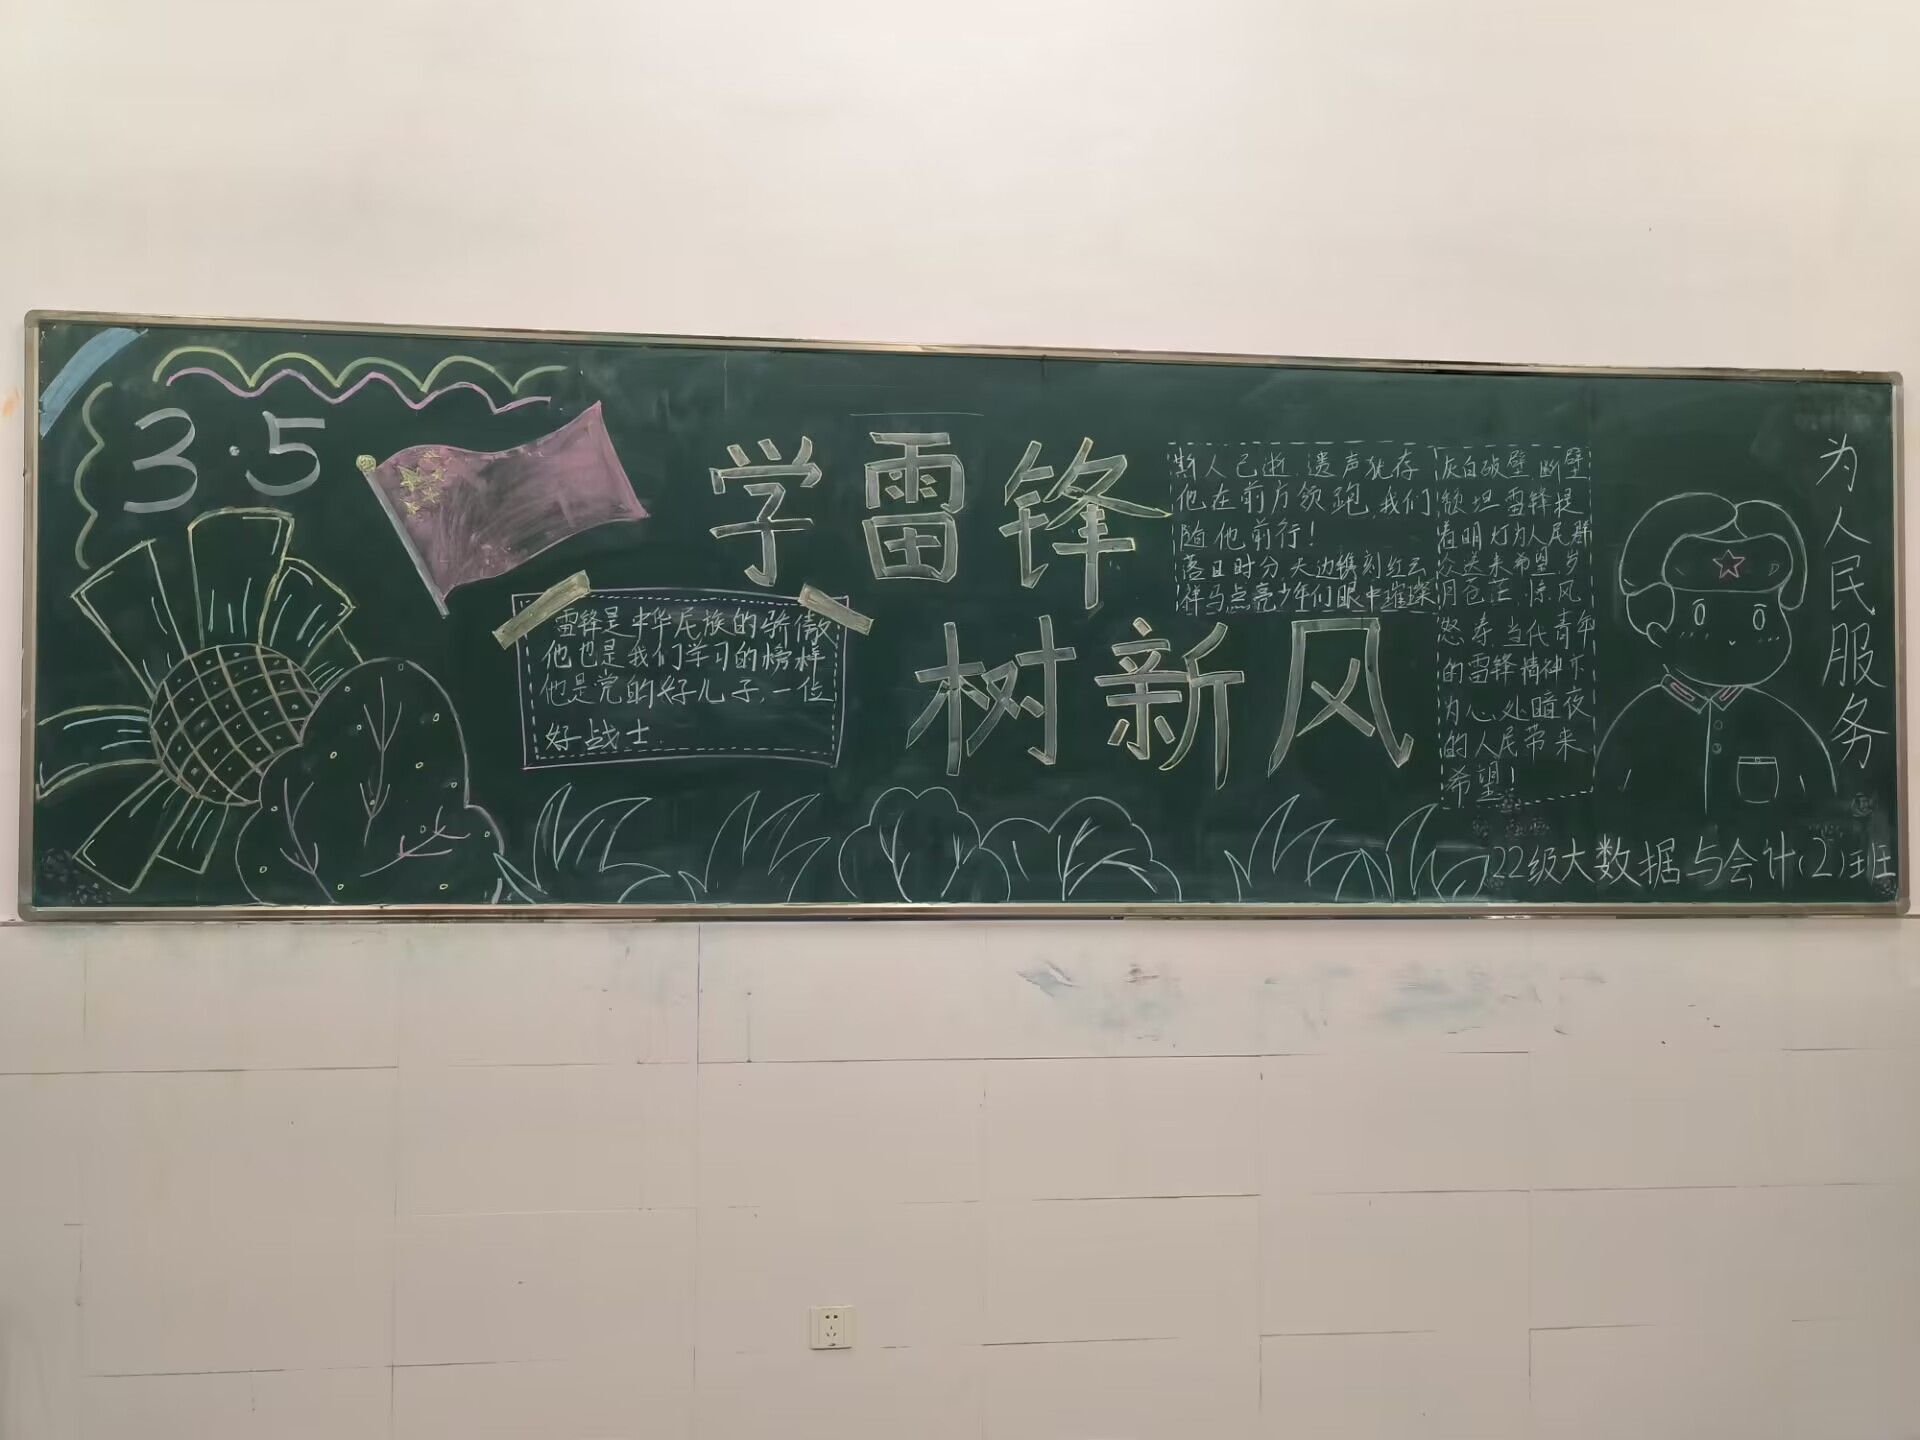 3·5
学雷锋
树新风
雷锋是中华民族的骄傲
他也是我们学习的榜样
他是党的好儿子,一位
好战士.
斯人已逝,遗声犹存
他在前方领跑,我们
随他前行!
落日时分 天边镌刻红云
祥马点亮少年们眼中璀璨
灰白破壁 断壁
颓坦 雷锋提
着明灯为人民群
众送来希望,岁
月苍茫,惊风
怒涛,当代青年
的雷锋精神亦
为心处暗夜
的人民带来
希望!
为人民服务
22级大数据与会计(2)班